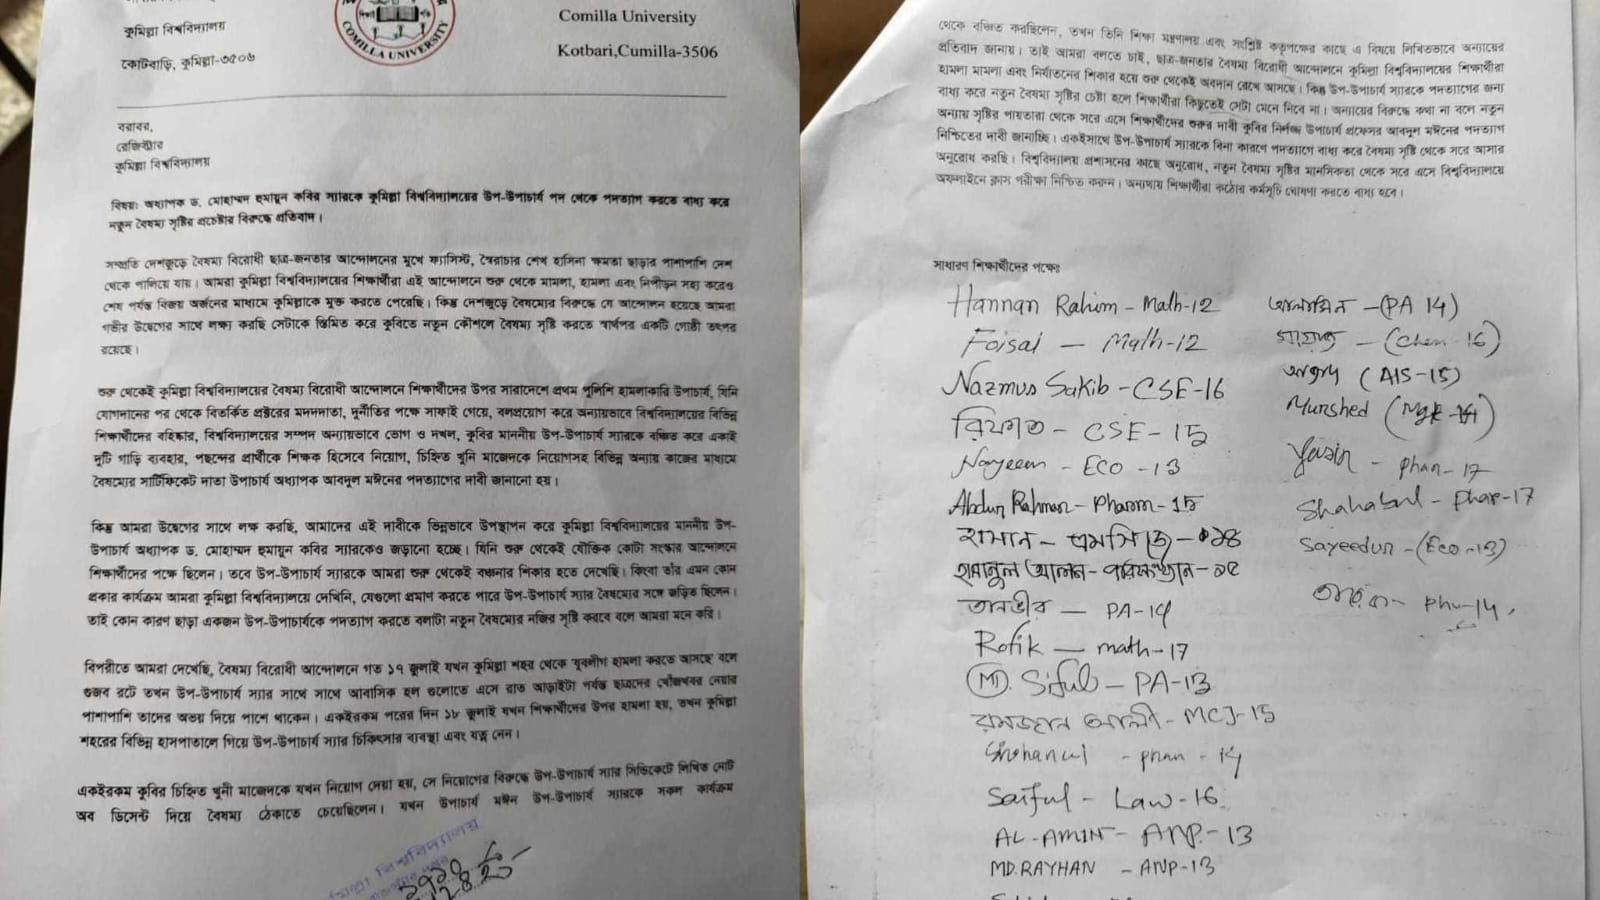 কুমিল্লা বিশ্ববিদ্যালয়
কোটবাড়ি, কুমিল্লা-৩৫০৬
COMILLA UNIVERSITY
Comilla University
Kotbari,Cumilla-3506
বরাবর,
রেজিস্ট্রার
কুমিল্লা বিশ্ববিদ্যালয়
বিষয়: অধ্যাপক ড. মোহাম্মদ হুমায়ুন কবির স্যারকে কুমিল্লা বিশ্ববিদ্যালয়ের উপ-উপাচার্য পদ থেকে পদত্যাগ করতে বাধ্য করে
নতুন বৈষম্য সৃষ্টির প্রচেষ্টার বিরুদ্ধে প্রতিবাদ।
সম্প্রতি দেশজুড়ে বৈষম্য বিরোধী ছাত্র-জনতার আন্দোলনের মুখে ফ্যাসিস্ট, স্বৈরাচার শেখ হাসিনা ক্ষমতা ছাড়ার পাশাপাশি দেশ
থেকে পালিয়ে যায়। আমরা কুমিল্লা বিশ্ববিদ্যালয়ের শিক্ষার্থীরা এই আন্দোলনে শুরু থেকে মামলা, হামলা এবং নিপীড়ন সহ্য করেও
শেষ পর্যন্ত বিজয় অর্জনের মাধ্যমে কুমিল্লাকে মুক্ত করতে পেরেছি। কিন্তু দেশজুড়ে বৈষম্যের বিরুদ্ধে যে আন্দোলন হয়েছে আমরা
গভীর উদ্বেগের সাথে লক্ষ্য করছি সেটাকে স্তিমিত করে কুবিতে নতুন কৌশলে বৈষম্য সৃষ্টি করতে স্বার্থপর একটি গোষ্ঠী তৎপর
রয়েছে।
শুরু থেকেই কুমিল্লা বিশ্ববিদ্যালয়ের বৈষম্য বিরোধী আন্দোলনে শিক্ষার্থীদের উপর সারাদেশে প্রথম পুলিশি হামলাকারি উপাচার্য, যিনি
যোগদানের পর থেকে বিতর্কিত প্রক্টরের মদদদাতা, দুর্নীতির পক্ষে সাফাই গেয়ে, বলপ্রয়োগ করে অন্যায়ভাবে বিশ্ববিদ্যালয়ের বিভিন্ন
শিক্ষার্থীদের বহিষ্কার, বিশ্ববিদ্যালয়ের সম্পদ অন্যায়ভাবে ভোগ ও দখল, কুবির মাননীয় উপ-উপাচার্য স্যারকে বঞ্চিত করে একাই
দুটি গাড়ি ব্যবহার, পছন্দের প্রার্থীকে শিক্ষক হিসেবে নিয়োগ, চিহ্নিত খুনি মাজেদকে নিয়োগসহ বিভিন্ন অন্যায় কাজের মাধ্যমে
বৈষম্যের সার্টিফিকেট দাতা উপাচার্য অধ্যাপক আবদুল মঈনের পদত্যাগের দাবী জানানো হয়।
কিন্তু আমরা উদ্বেগের সাথে লক্ষ করছি, আমাদের এই দাবীকে ভিন্নভাবে উপস্থাপন করে কুমিল্লা বিশ্ববিদ্যালয়ের মাননীয় উপ-
উপাচার্য অধ্যাপক ড. মোহাম্মদ হুমায়ুন কবির স্যারকেও জড়ানো হচ্ছে। যিনি শুরু থেকেই যৌক্তিক কোটা সংস্কার আন্দোলনে
শিক্ষার্থীদের পক্ষে ছিলেন। তবে উপ-উপাচার্য স্যারকে আমরা শুরু থেকেই বঞ্চনার শিকার হতে দেখেছি। কিংবা তাঁর এমন কোন
প্রকার কার্যক্রম আমরা কুমিল্লা বিশ্ববিদ্যালয়ে দেখিনি, যেগুলো প্রমাণ করতে পারে উপ-উপাচার্য স্যার বৈষম্যের সঙ্গে জড়িত ছিলেন।
তাই কোন কারণ ছাড়া একজন উপ-উপাচার্যকে পদত্যাগ করতে বলাটা নতুন বৈষম্যের নজির সৃষ্টি করবে বলে আমরা মনে করি।
বিপরীতে আমরা দেখেছি, বৈষম্য বিরোধী আন্দোলনে গত ১৭ জুলাই যখন কুমিল্লা শহর থেকে 'যুবলীগ হামলা করতে আসছে' বলে
গুজব রটে তখন উপ-উপাচার্য স্যার সাথে সাথে আবাসিক হল গুলোতে এসে রাত আড়াইটা পর্যন্ত ছাত্রদের খোঁজখবর নেয়ার
পাশাপাশি তাদের অভয় দিয়ে পাশে থাকেন। একইরকম পরের দিন ১৮ জুলাই যখন শিক্ষার্থীদের উপর হামলা হয়, তখন কুমিল্লা
শহরের বিভিন্ন হাসপাতালে গিয়ে উপ-উপাচার্য স্যার চিকিৎসার ব্যবস্থা এবং যত্ন নেন।
একইরকম কুবির চিহ্নিত খুনী মাজেদকে যখন নিয়োগ দেয়া হয়, সে নিয়োগের বিরুদ্ধে উপ-উপাচার্য স্যার সিন্ডিকেটে লিখিত নোট
অব ডিসেন্ট দিয়ে বৈষম্য ঠেকাতে চেয়েছিলেন। যখন উপাচার্য মঈন উপ-উপাচার্য স্যারকে সকল কার্যক্রম
বিশ্ববিদ্যালয়
থেকে বঞ্চিত করছিলেন, তখন তিনি শিক্ষা মন্ত্রণালয় এবং সংশ্লিষ্ট কতৃপক্ষের কাছে এ বিষয়ে লিখিতভাবে অন্যায়ের
প্রতিবাদ জানায়। তাই আমরা বলতে চাই, ছাত্র-জনতার বৈষম্য বিরোধী আন্দোলনে কুমিল্লা বিশ্ববিদ্যালয়ের শিক্ষার্থীরা
হামলা মামলা এবং নির্যাতনের শিকার হয়ে শুরু থেকেই অবদান রেখে আসছে। কিন্তু উপ-উপাচার্য স্যারকে পদত্যাগের জন্য
বাধ্য করে নতুন বৈষম্য সৃষ্টির চেষ্টা হলে শিক্ষার্থীরা কিছুতেই সেটা মেনে নিবে না। অন্যায়ের বিরুদ্ধে কথা না বলে নতুন
অন্যায় সৃষ্টির পায়তারা থেকে সরে এসে শিক্ষার্থীদের শুরুর দাবী কুবির নির্লজ্জ উপাচার্য প্রফেসর আবদুল মঈনের পদত্যাগ
নিশ্চিতের দাবী জানাচ্ছি। একইসাথে উপ-উপাচার্য স্যারকে বিনা কারণে পদত্যাগে বাধ্য করে বৈষম্য সৃষ্টি থেকে সরে আসার
অনুরোধ করছি। বিশ্ববিদ্যালয় প্রশাসনের কাছে অনুরোধ, নতুন বৈষম্য সৃষ্টির মানসিকতা থেকে সরে এসে বিশ্ববিদ্যালয়ে
অফলাইনে ক্লাস পরীক্ষা নিশ্চিত করুন। অন্যথায় শিক্ষার্থীরা কঠোর কর্মসূচি ঘোষণা করতে বাধ্য হবে।
সাধারণ শিক্ষার্থীদের পক্ষেঃ
Hannan Rahim - Math-12
Foisal — Math-12
Nazmus Sakib - CSE-16
রিফাত - CSE - 15
Nayeem - ECO - 13
Abdur Rahman - Pharm - 15
হাসান - এমসিজে - ১৪
পরিসংখ্যান - ১৫
তানভীর — PA-14
Rofik — math-17
MD. Siful - PA-13
রমজান আলী - MCJ-15
- phar - 14
Saiful - Law-16
AL-AMIN - ANP-13
MD.RAYHAN - ANP-13
আলামিন - (PA 14)
- (Chem-16)
(AIS-15)
Murshed
Yasin - phar-17
- Phar-17
Sayeedur - (Eco-13)